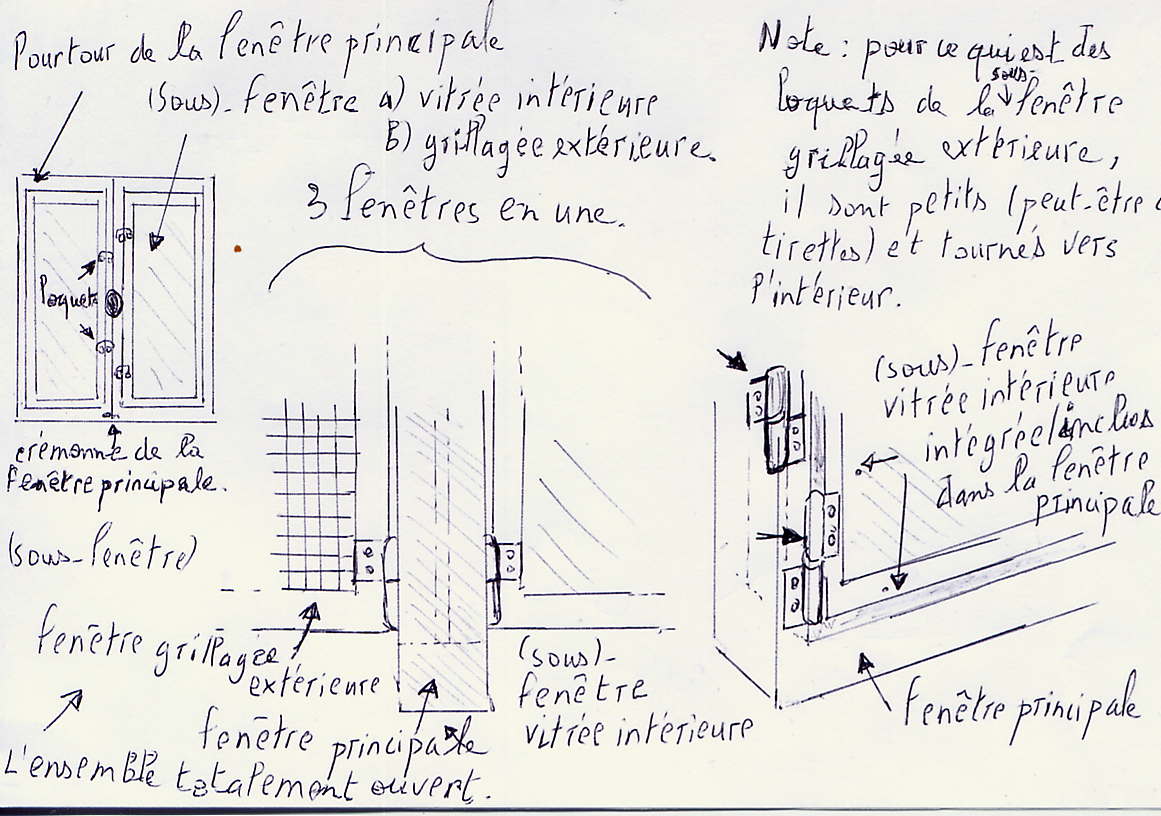 Pourtour de la fenêtre principale
(sous)_ fenêtre a) vitrée intérieure
B) grillagée extérieure.
3 fenêtres en une.
Loquets
crémonne de la
fenêtre principale.
(sous-fenêtre)
fenêtre grillagée
extérieure
fenêtre principale
L'ensemble totalement ouvert.
(sous)-
fenêtre
vitrée intérieure
Note : pour ce qui est des
sous-
loquets de la fenêtre
grillagée extérieure,
il sont petits (peut-être
tirettes) et tournés vers
l'intérieur.
(sous)_ fenêtre
vitrée intérieure
intégrée/inclus
dans la fenêtre
principale
fenêtre principale